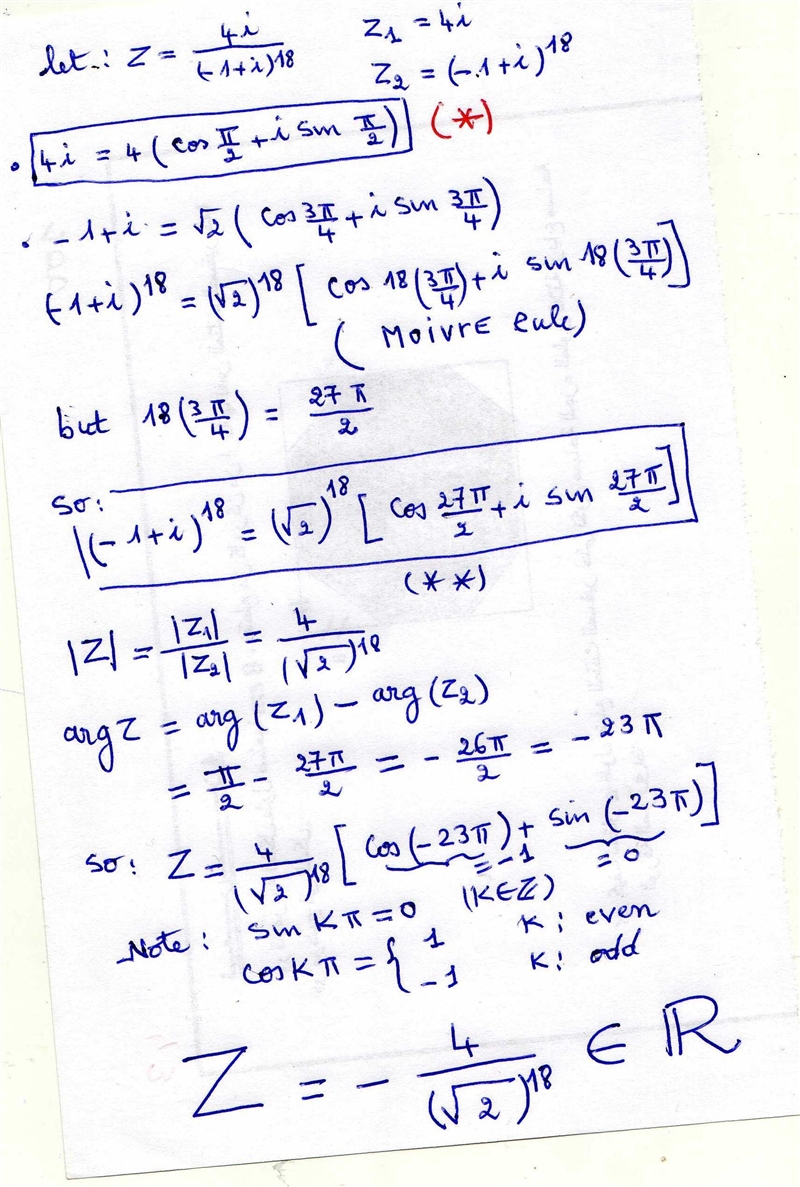 let : Z = 4i/(-1+i)^18   Z₁ = 4i
Z₂ = (-1+i)^18
• 4i = 4 (cos π/2 + i sin π/2) (*)
• -1+i = √2 (cos 3π/4 + i sin 3π/4)
(-1+i)^18 = (√2)^18 [cos 18(3π/4) + i sin 18(3π/4)]
( MOIVRE rule)
but 18(3π/4) = 27π/2
so: (-1+i)^18 = (√2)^18 [cos 27π/2 + i sin 27π/2]
(**)
|Z| = |Z₁|/|Z₂| = 4/(√2)^18
arg Z = arg (Z₁) - arg (Z₂)
= π/2 - 27π/2 = - 26π/2 = - 23π
so: Z = 4/(√2)^18 [cos(-23π) + sin(-23π)]
= -1   = 0
Note : sin Kπ = 0 (K∈Z)
cos Kπ = { 1   K: even
-1   K: odd
Z = - 4/(√2)^18 ∈ ℝ